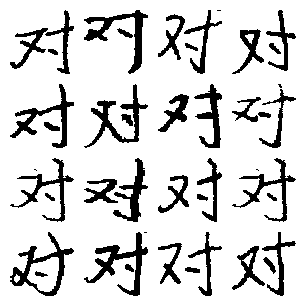 对对对对
对对对对
对对对对
对对对对